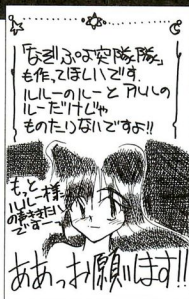 「なぞぷよ突隊隊」
も作ってほしいです。
ルルーのルーと アルルの
ルーだけじゃ
ものたりないですよ!!
もっと
ルルー様
の声ききたい
ですー
ああっお願いします!!